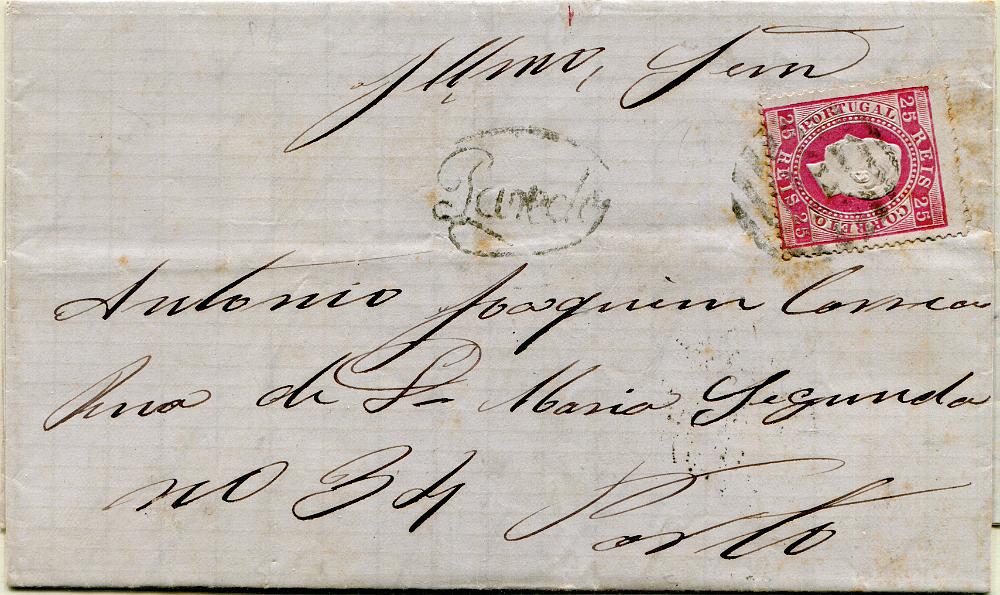 Illmo, Senr
PORTUGAL
25 REIS 25
25 REIS 25
CORREIO
Paredes
Antonio Joaquim Correia
Rua de D. Maria Segunda
no 34 Porto